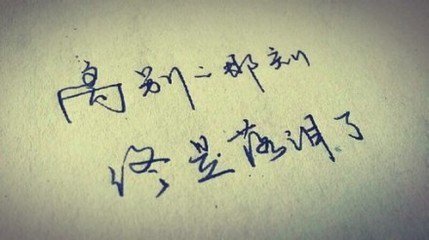 离别之那刻
终是落泪了